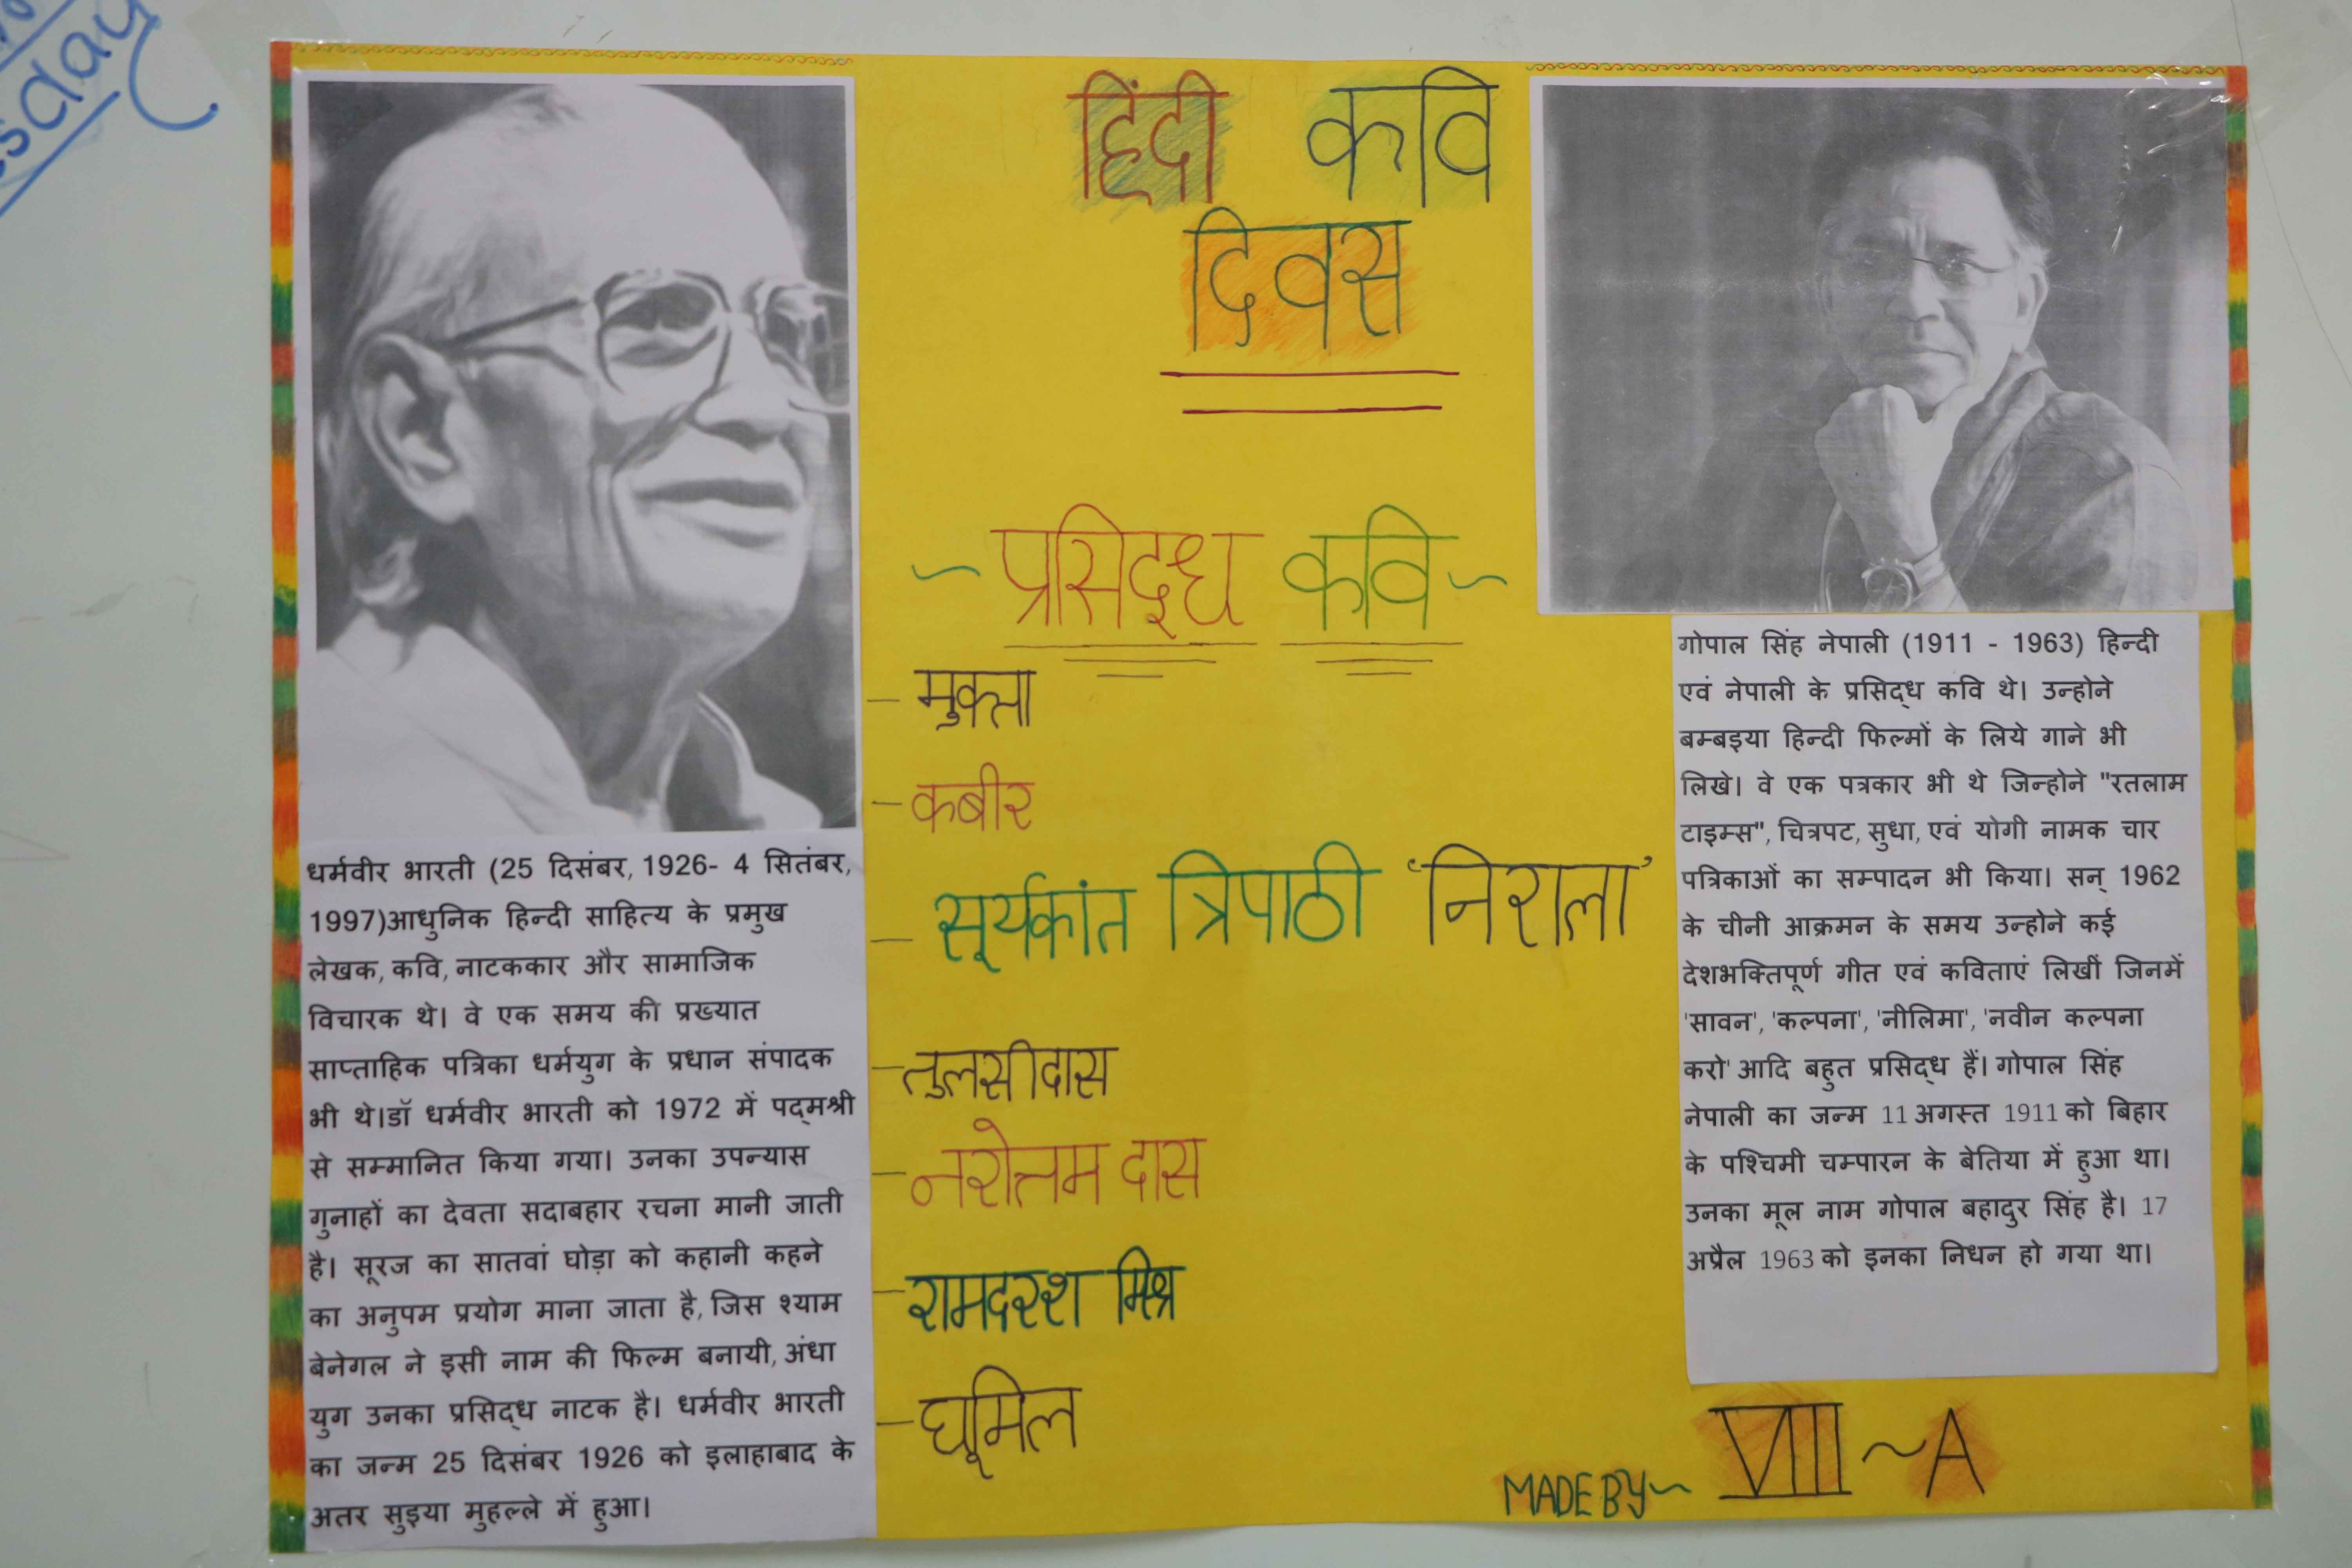 हिंदी कवि
दिवस
धर्मवीर भारती (25 दिसंबर, 1926- 4 सितंबर,
1997)आधुनिक हिन्दी साहित्य के प्रमुख
लेखक, कवि, नाटककार और सामाजिक
विचारक थे। वे एक समय की प्रख्यात
साप्ताहिक पत्रिका धर्मयुग के प्रधान संपादक
भी थे।डॉ धर्मवीर भारती को 1972 में पद्मश्री
से सम्मानित किया गया। उनका उपन्यास
गुनाहों का देवता सदाबहार रचना मानी जाती
है। सूरज का सातवां घोड़ा को कहानी कहने
का अनुपम प्रयोग माना जाता है, जिस श्याम
बेनेगल ने इसी नाम की फिल्म बनायी, अंधा
युग उनका प्रसिद्ध नाटक है। धर्मवीर भारती
का जन्म 25 दिसंबर 1926 को इलाहाबाद के
अतर सुइया मुहल्ले में हुआ।
~प्रसिद्ध कवि~
- मुक्ता
- कबीर
- सूर्यकांत त्रिपाठी 'निराला'
- तुलसीदास
- नरोत्तम दास
- रामदरश मिश्र
- घूमिल
गोपाल सिंह नेपाली (1911 - 1963) हिन्दी
एवं नेपाली के प्रसिद्ध कवि थे। उन्होने
बम्बइया हिन्दी फिल्मों के लिये गाने भी
लिखे। वे एक पत्रकार भी थे जिन्होने "रतलाम
टाइम्स", चित्रपट, सुधा, एवं योगी नामक चार
पत्रिकाओं का सम्पादन भी किया। सन् 1962
के चीनी आक्रमन के समय उन्होने कई
देशभक्तिपूर्ण गीत एवं कविताएं लिखीं जिनमें
'सावन', 'कल्पना', 'नीलिमा', 'नवीन कल्पना
करो' आदि बहुत प्रसिद्ध हैं। गोपाल सिंह
नेपाली का जन्म 11 अगस्त 1911 को बिहार
के पश्चिमी चम्पारन के बेतिया में हुआ था।
उनका मूल नाम गोपाल बहादुर सिंह है। 17
अप्रैल 1963 को इनका निधन हो गया था।
MADE BY~ VIII~A